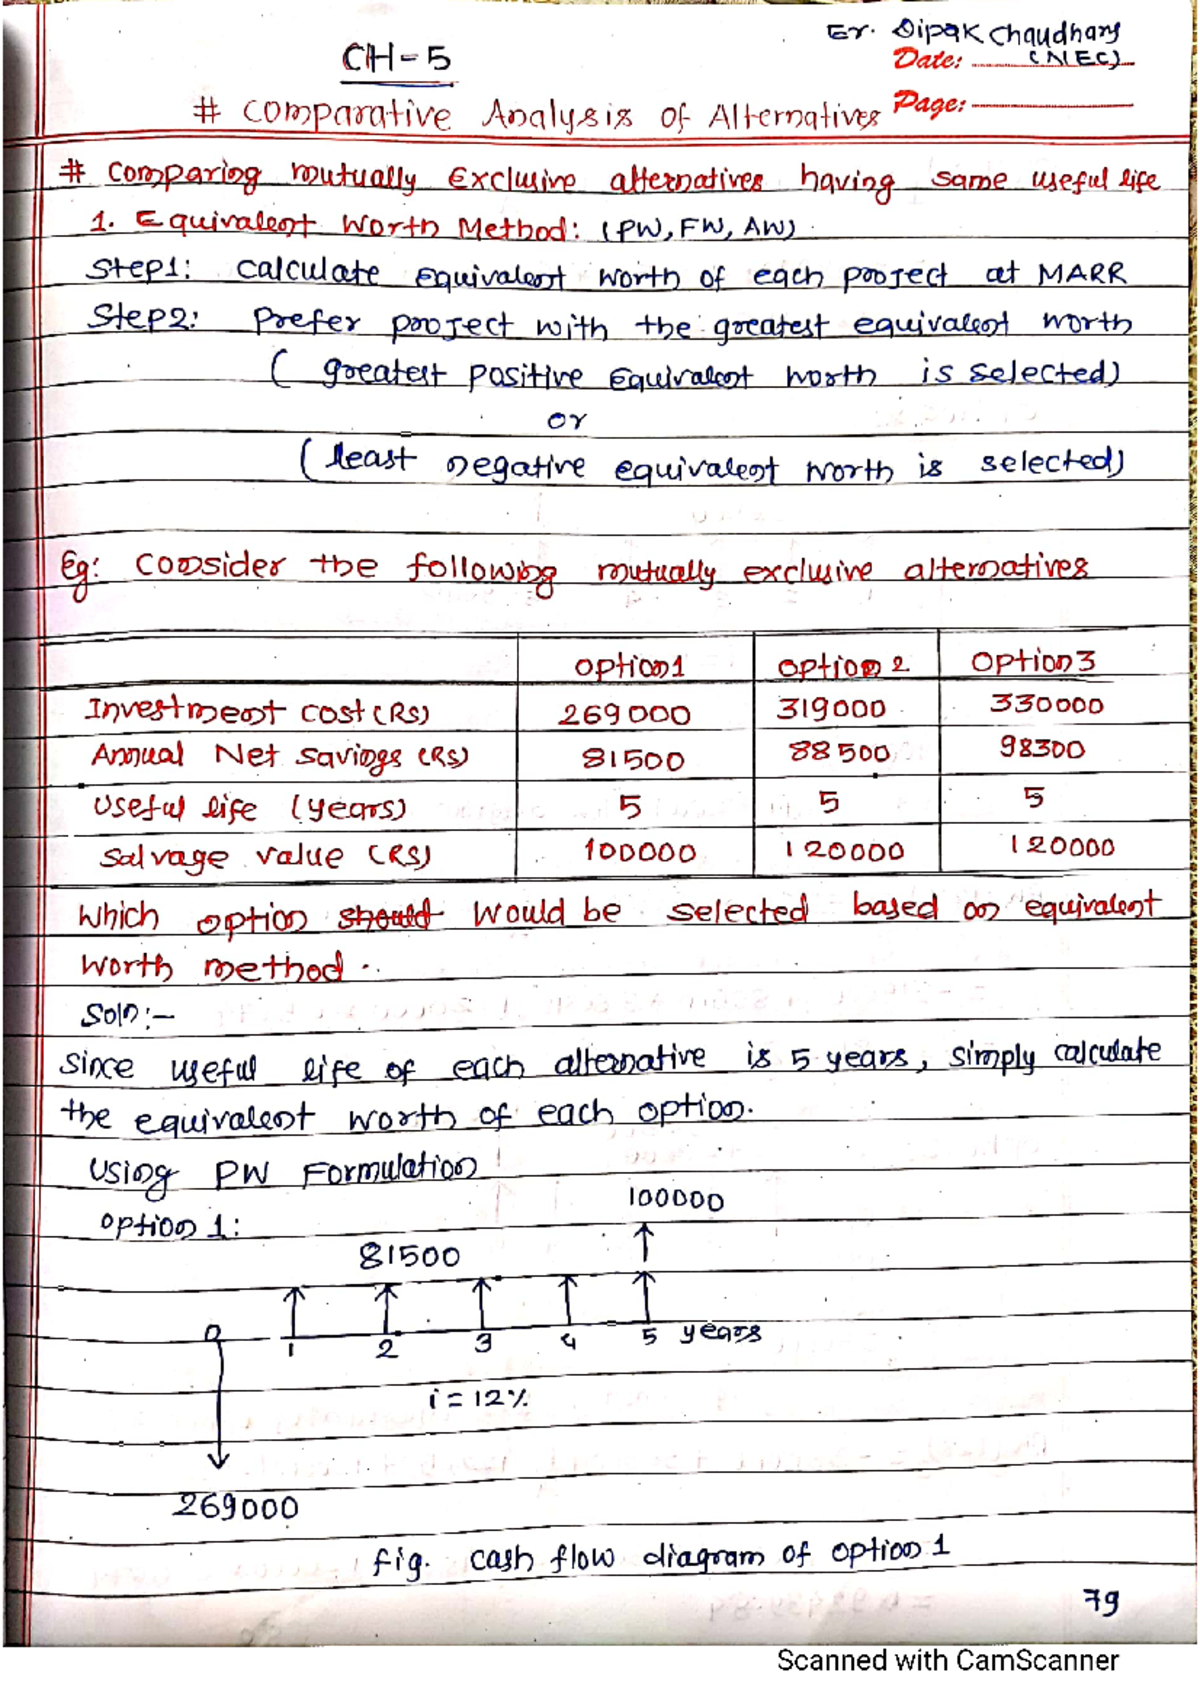 Er. Dipak Chaudhary
CH-5
Date: (NEC)
# Comparative Analysis of Alternatives Page:
# Comparing mutually Exclusive alternatives having same useful life
1. Equivalent Worth Method: (PW, FW, AW)
Step1: Calculate equivalent worth of each project at MARR
Step2: Prefer project with the greatest equivalent worth
( greatest positive equivalent worth is selected)
or
( least negative equivalent worth is selected)
Eg: Consider the following mutually exclusive alternatives
Option1 Option 2 Option3
Investment cost (RS) 269000 319000 330000
Annual Net savings (RS) 81500 88500 98300
Useful life (years) 5 5 5
Salvage value (RS) 100000 120000 120000
Which option should would be selected based on equivalent
worth method.
Soln:-
Since useful life of each alternative is 5 years, simply calculate
the equivalent worth of each option.
Using PW Formulation
100000
Option 1:
81500
0 1 2 3 4 5 years
i = 12%
269000
fig. cash flow diagram of option 1
79
Scanned with CamScanner